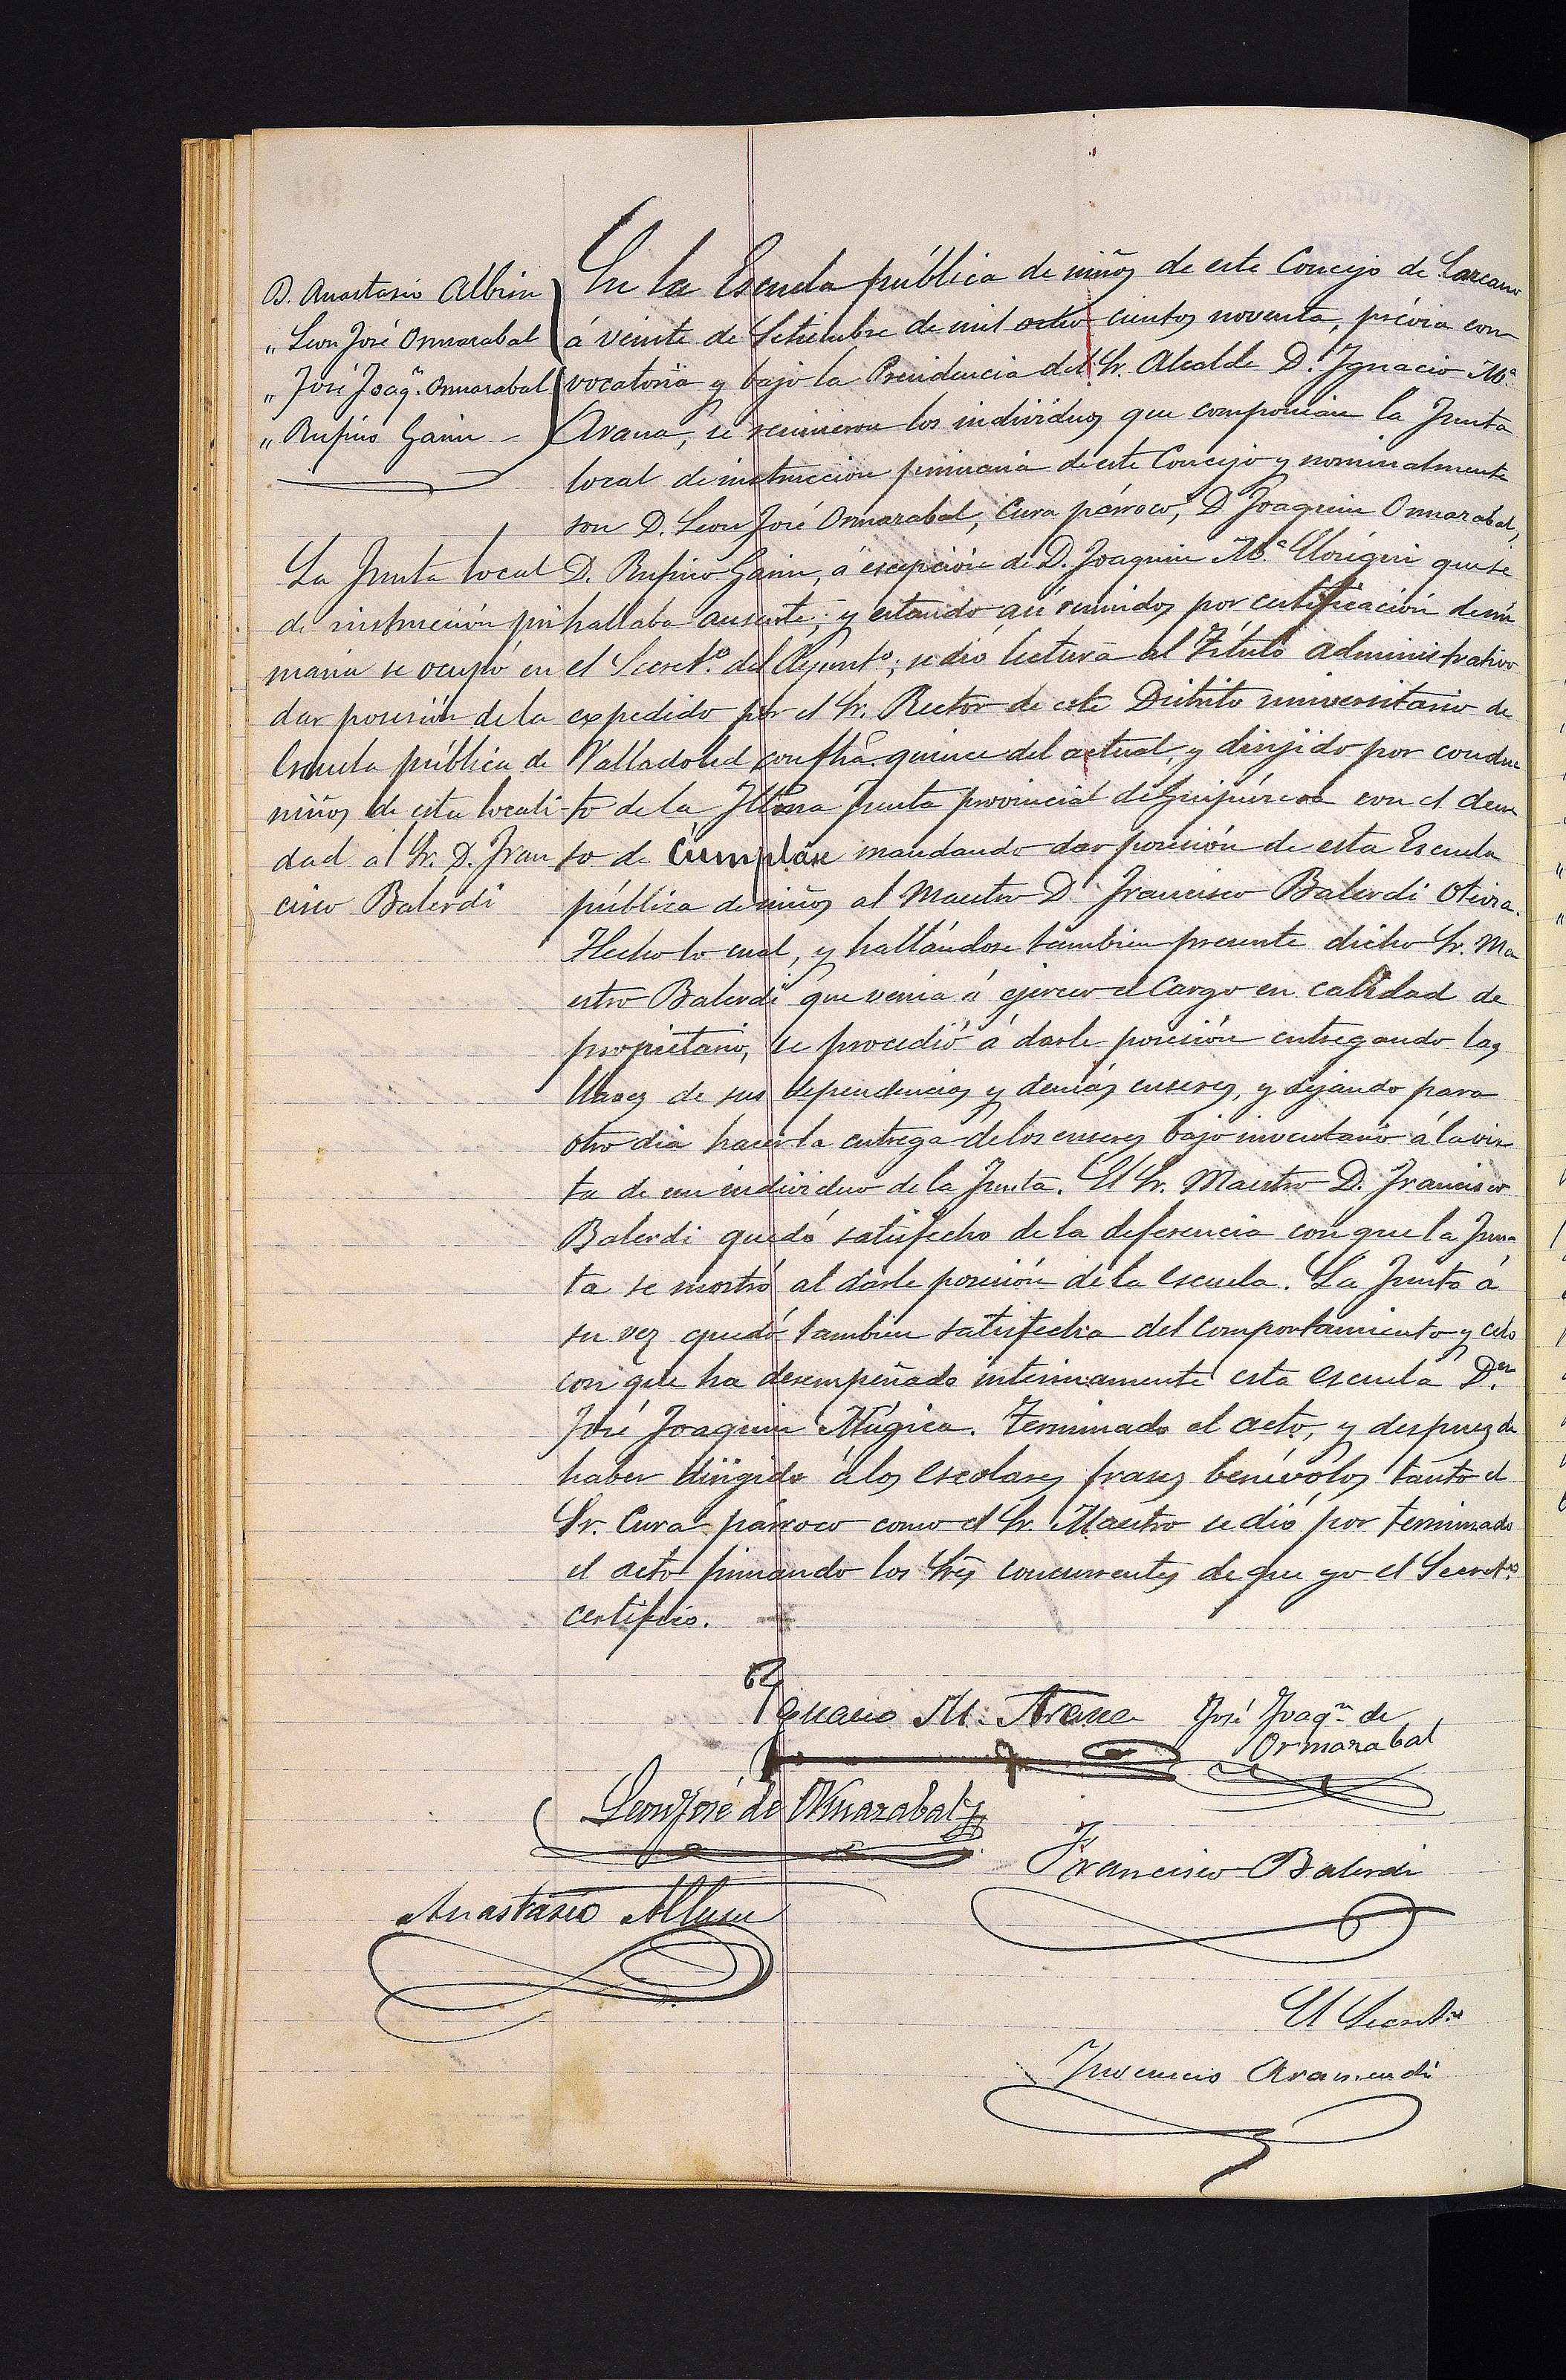 D. Anastasio Albisu
" Leon José Ormazabal
" José Joaqn. Ormazabal
" Rufino Garin -
La Junta local
de instrucción pri
maria se ocupó en
dar posesión de la
Escuela pública de
niños de esta locali-
dad al Sr. D. Fran
cisco Balerdi
En la Escuela pública de niños de este Concejo de Lazcano
á veinte de Setiembre de mil ocho cientos noventa, prévia con
vocatoria y bajo la Presidencia del Sr. Alcalde D. Ignacio Ma.
Arana, se reunieron los individuos que componian la Junta
local de instruccion primaria de este Concejo y nominalmente
son D. Leon José Ormazabal, Cura párroco, D Joaquin Ormazabal,
D. Rufino Garin, á escepción de D. Joaquin Ma. Elorégui que se
hallaba ausente; y estando asi reunidos por certificación de mi
el Secreto. del Ayunto.; se dió lectura al Título administrativo
expedido por el Sr. Rector de este Distrito universitario de
Valladolid con fha quince del actual, y dirijido por conduc
to de la Iltma Junta provincial de Guipúzcoa con el decre
to de Cúmplase mandando dar posesión de esta Escuela
pública de niños al Maestro D. Francisco Balerdi Oteiza.
Hecho lo cual, y hallándose tambien presente dicho Sr. Ma
estro Balerdi que venia á ejercer el Cargo en calidad de
propietario, se procedió á darle posesión entregando las
llaves de sus dependencias y demás enseres, y dejando para
otro dia hacer la entrega de los enseres bajo inventario á la vis
ta de un individuo de la Junta. El Sr. Maestro D. Francisco
Balerdi quedó satisfecho de la deferencia con que la Jun-
ta se mostró al darle posesión de la escuela. La Junta á
su vez quedó tambien satisfecha del comportamiento y celo
con que ha desempeñado interinamente esta escuela Dn.
José Joaquin Múgica. Terminado el acto, y despues de
haber dirigido á los escolares frases benévolas tanto el
Sr. Cura párroco como el Sr. Maestro se dió por terminado
el acto firmando los Sres concurrentes de que yo el Secreto.
certifico.
Ignacio M. Arana
José Joaqn. de
Ormazabal
Leon José de Ormazabal
Francisco Balerdi
Anastasio Albisu
El Secreto.
Inocencio Aramendi